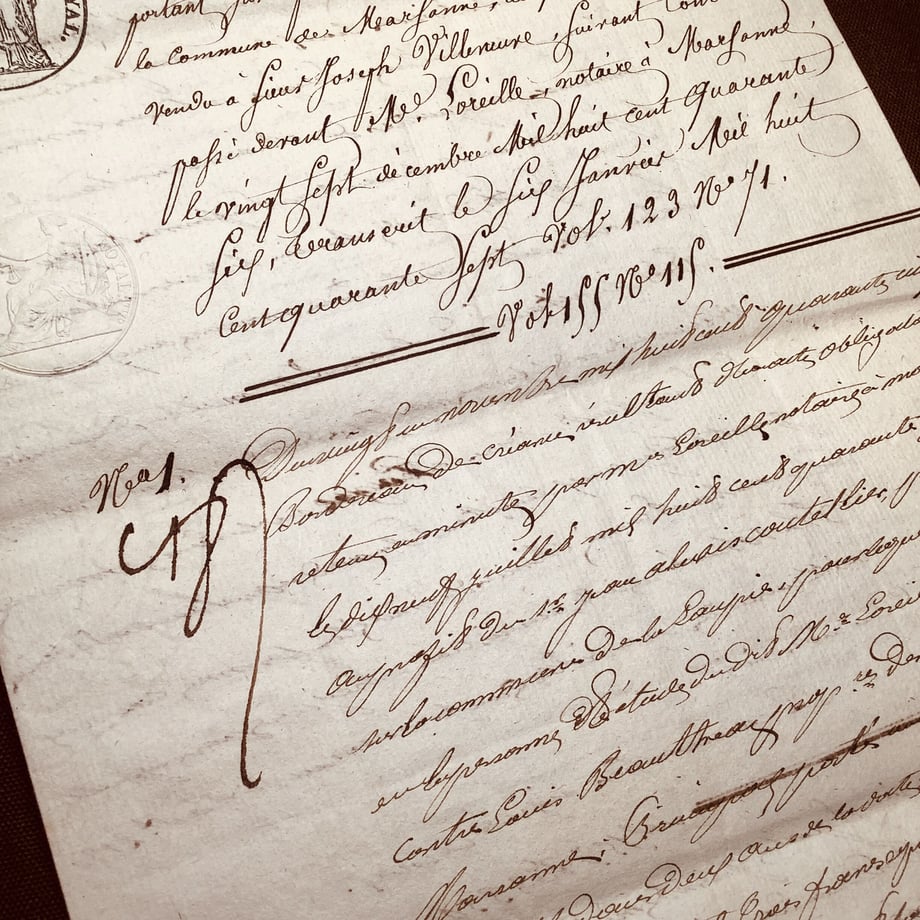 NAL.
portant
la commune de Marsanne,
vendu à Sieur Joseph Villeneuve, suivant
passé devant Me. Loreille, notaire à Marsanne,
le vingt sept décembre Mil huit cent quarante
Six, transcrit le Six Janvier Mil huit
Cent quarante Sept Vol. 123 No 71.
Vol 155 No 115.
No 1.
Du vingt un novembre mil huit cent quarante
Bordereau de créance résultant d'un acte obligatoire
retenu en minute par Me Loreille notaire à
le dix neuf juillet mil huit cent quarante
au profit du Sr. jean alexis coutellier,
sur la commune de la Laupie, pour lequel
en la personne & étude du dit Me Loreille
contre Louis Beaultheac prop.re de
Marsanne,
deux ans de la date
trois francs